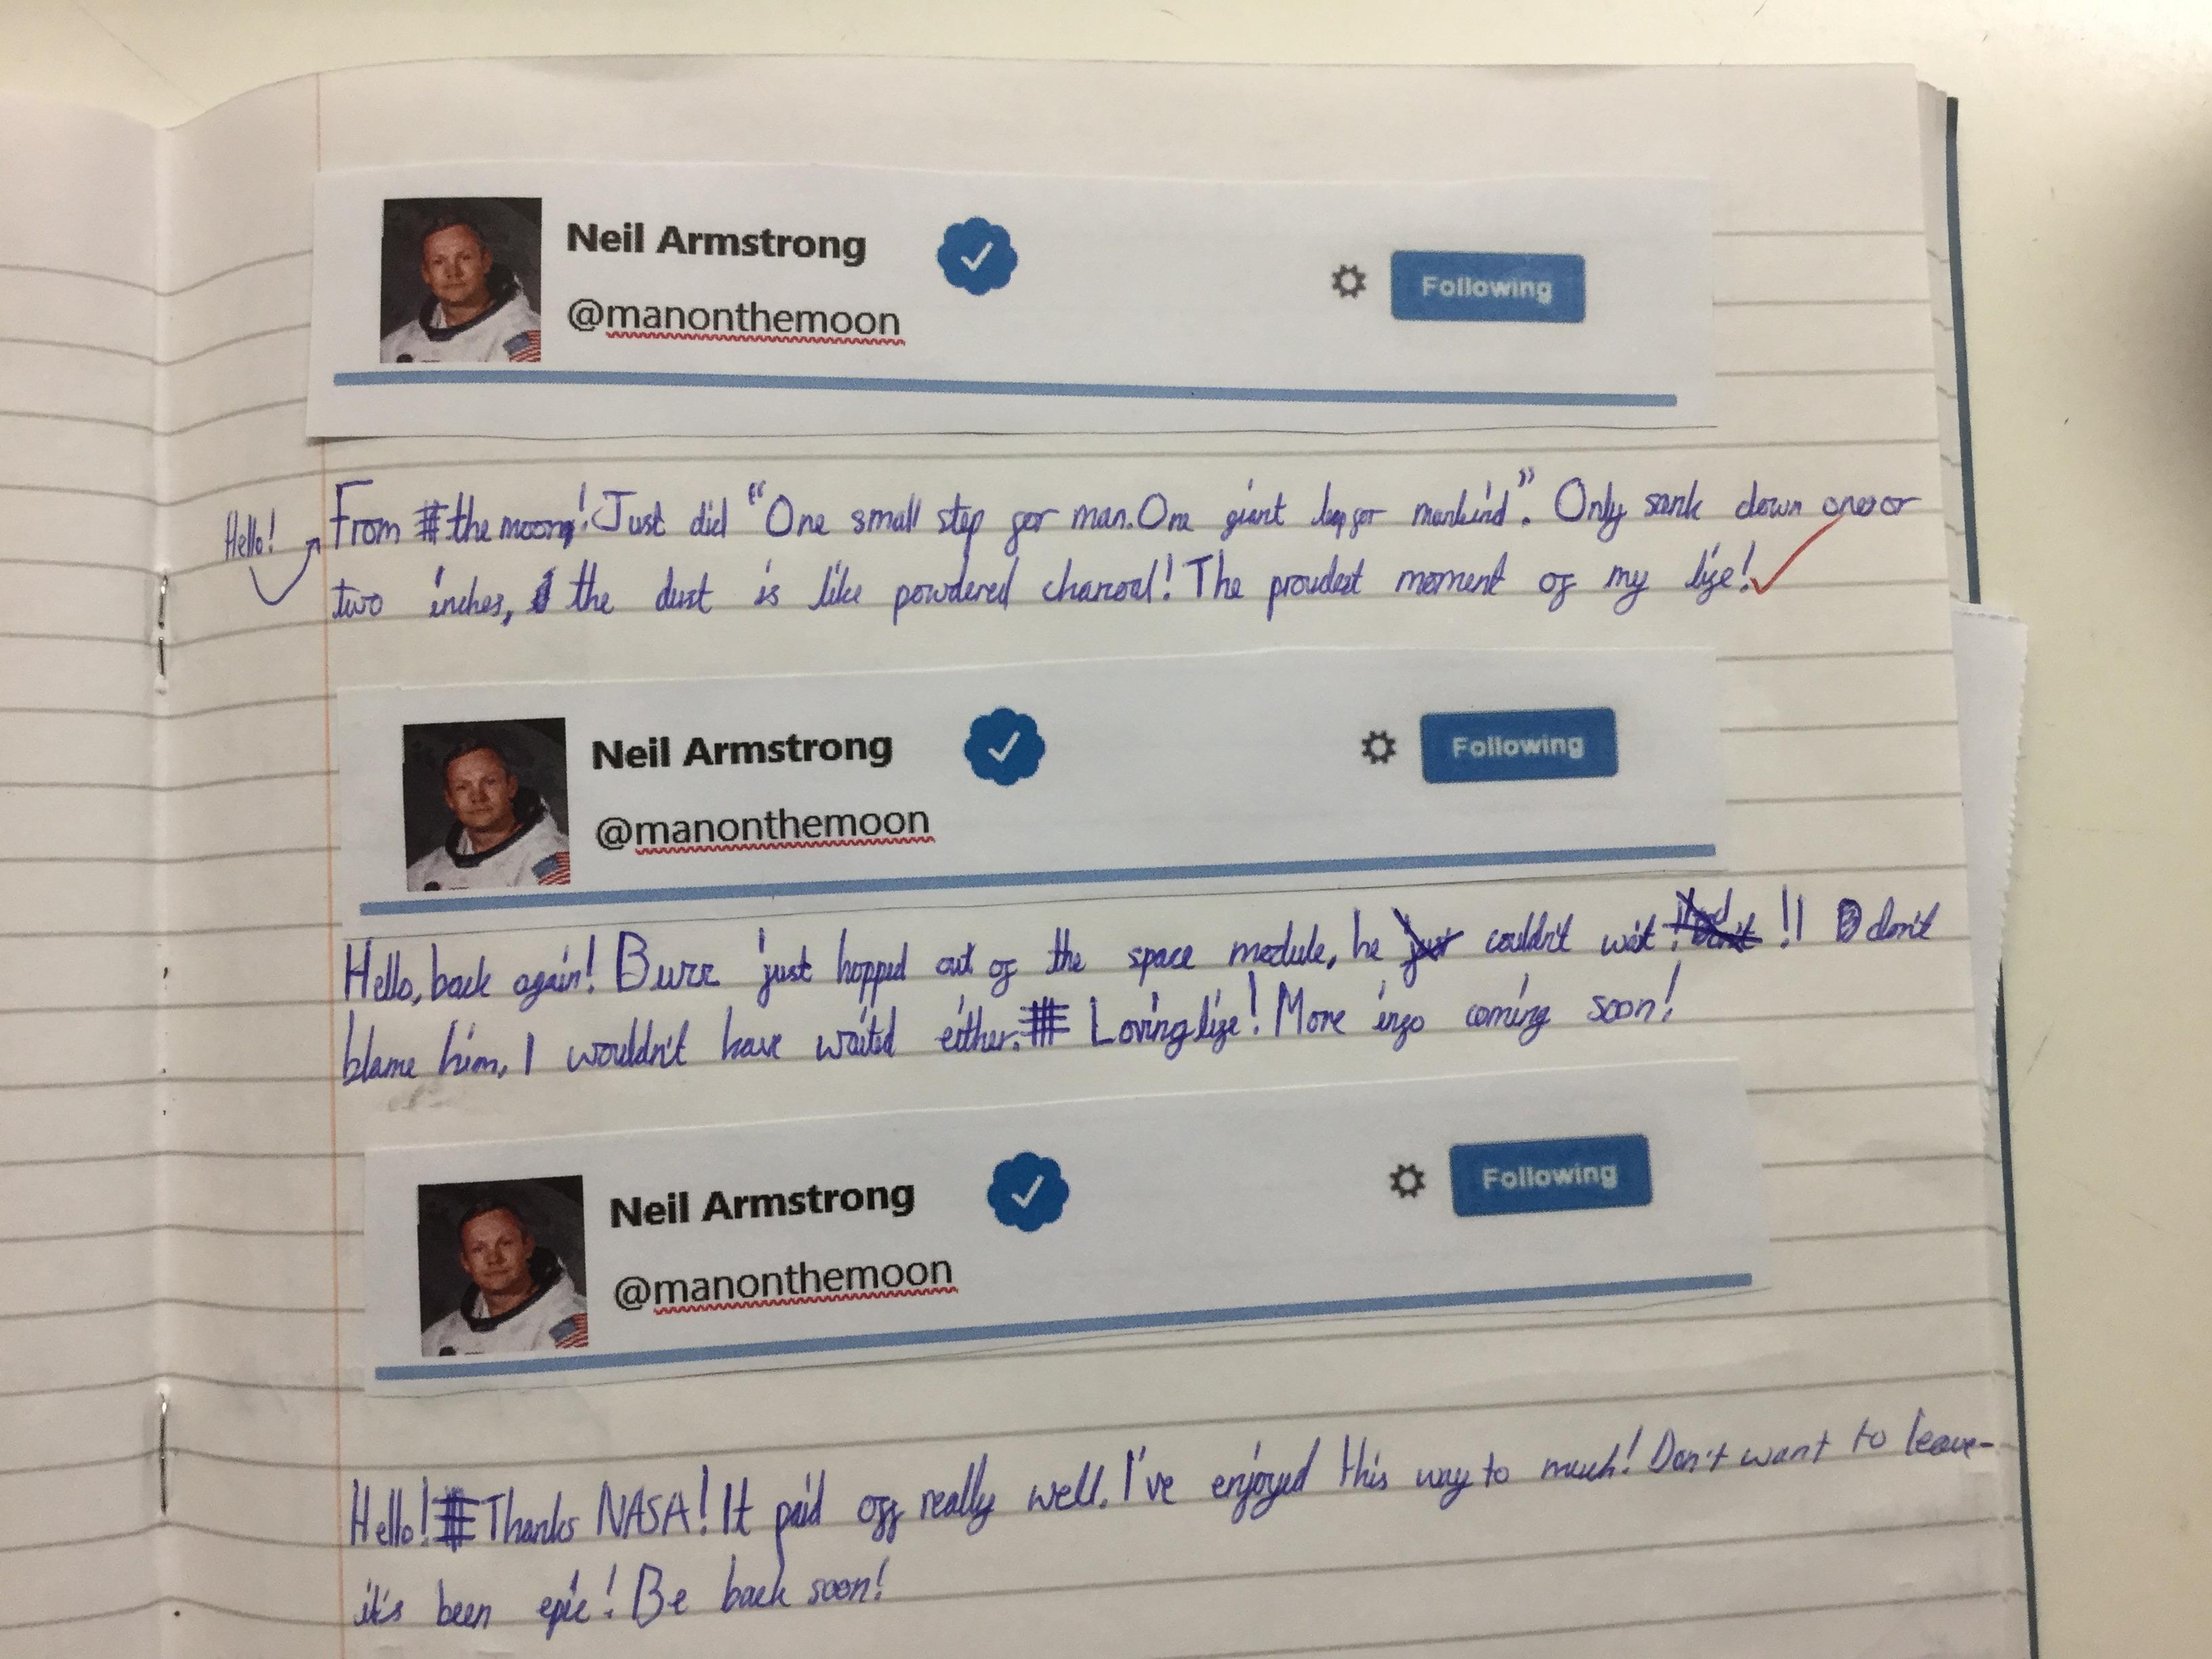 Neil Armstrong
@manonthemoon
Following
Hello!
From #the moon! Just did "One small step for man. One giant leap for mankind". Only sank down one or
two inches, the dust is like powdered charcoal! The proudest moment of my life!
Neil Armstrong
@manonthemoon
Following
Hello, back again! Buzz just hopped out of the space module, he just couldn't wait!! don't
blame him, I wouldn't have waited either. # Loving life! More info coming soon!
Neil Armstrong
@manonthemoon
Following
Hello! # Thanks NASA! It paid off really well. I've enjoyed this way to much! Don't want to leave-
it's been epic! Be back soon!